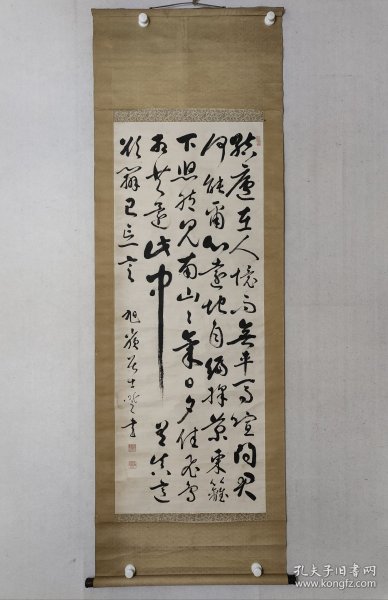 結廬在人境而無車馬喧問君
何能爾心遠地自偏採菊東籬
下悠然見南山山氣日夕佳飛鳥
相與還此中有真意
欲辨已忘言
旭嶺居士書
孔夫子旧书网
www.kongfz.com